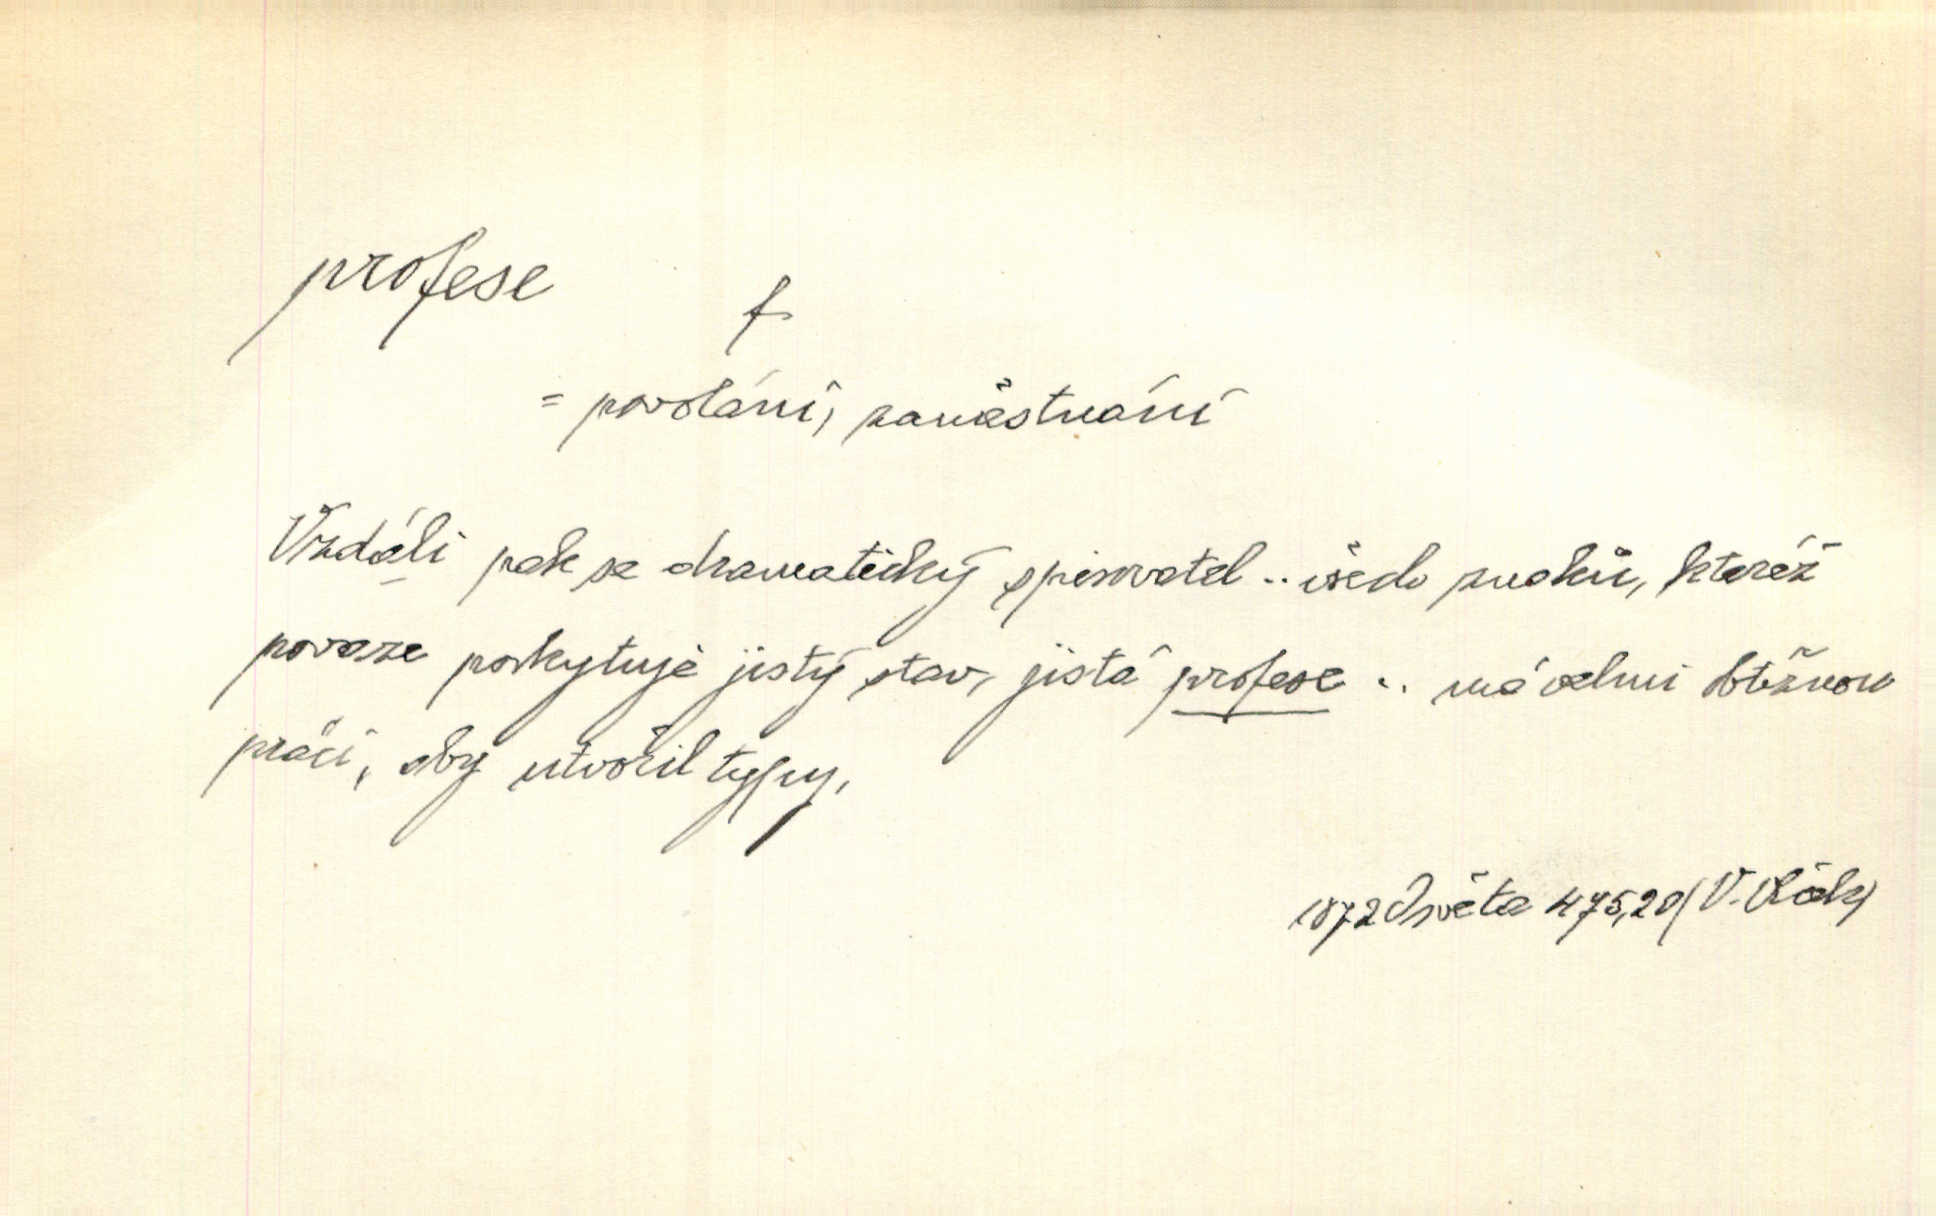 profese
f.
= povolání, zaměstnání
Vzdálí pak se dramatický spisovatel .. všech znaků, kteréž
povaze poskytuje jistý stav, jistá profese .. má velmi obtížnou
práci, aby utvořil typy.
1872 Osvěta 475,20 (V. Vlček)